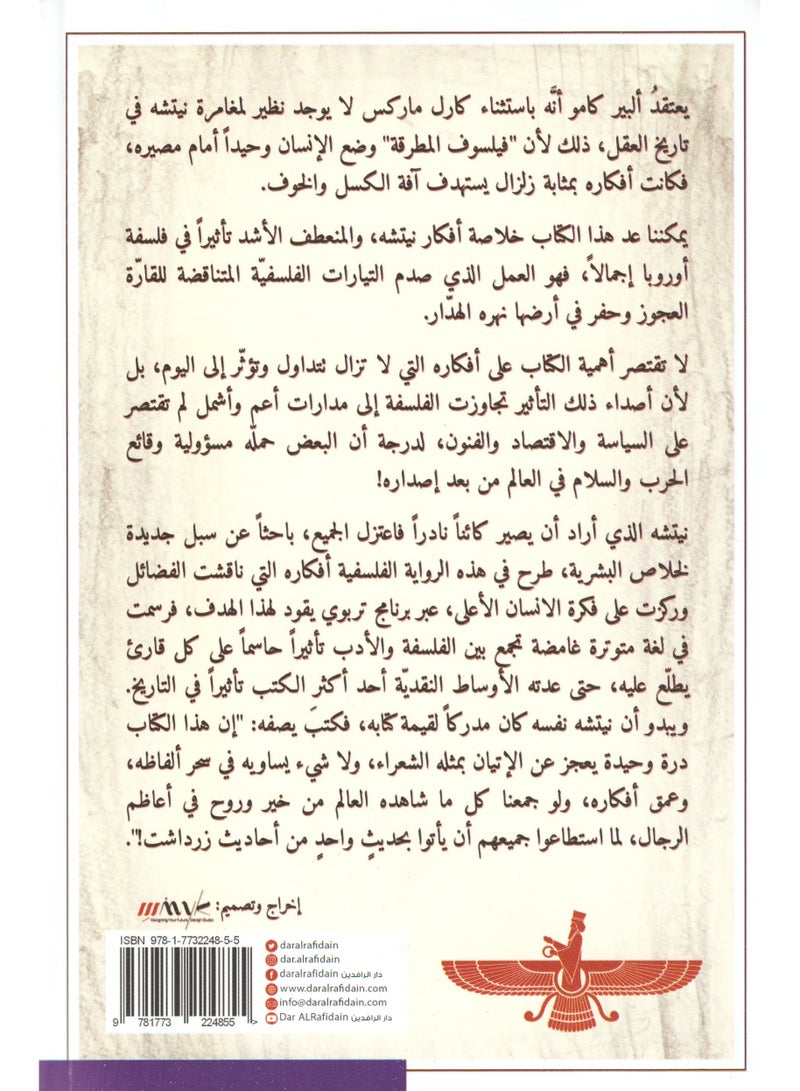 يعتقدُ ألبير كامو أنَّه باستثناء كارل ماركس لا يوجد نظير لمغامرة نيتشه في
تاريخ العقل، ذلك لأن "فيلسوف المطرقة" وضع الإنسان وحيداً أمام مصيره،
فكانت أفكاره بمثابة زلزال يستهدف آفة الكسل والخوف.
يمكننا عد هذا الكتاب خلاصة أفكار نيتشه، والمنعطف الأشد تأثيراً في فلسفة
أوروبا إجمالاً، فهو العمل الذي صدم التيارات الفلسفيّة المتناقضة للقارّة
العجوز وحفر في أرضها نهره الهدّار.
لا تقتصر أهمية الكتاب على أفكاره التي لا تزال تتداول وتؤثّر إلى اليوم، بل
لأن أصداء ذلك التأثير تجاوزت الفلسفة إلى مدارات أعم وأشمل لم تقتصر
على السياسة والاقتصاد والفنون، لدرجة أن البعض حملّه مسؤولية وقائع
الحرب والسلام في العالم من بعد إصداره!
نيتشه الذي أراد أن يصير كائناً نادراً فاعتزل الجميع، باحثاً عن سبل جديدة
لخلاص البشرية، طرح في هذه الرواية الفلسفية أفكاره التي ناقشت الفضائل
وركزت على فكرة الانسان الأعلى، عبر برنامج تربوي يقود لهذا الهدف، فرسمت
في لغة متوترة غامضة تجمع بين الفلسفة والأدب تأثيراً حاسماً على كل قارئ
يطلّع عليه، حتى عدته الأوساط النقديّة أحد أكثر الكتب تأثيراً في التاريخ.
ويبدو أن نيتشه نفسه كان مدركاً لقيمة كتابه، فكتبَ يصفه: "إن هذا الكتاب
درة وحيدة يعجز عن الإتيان بمثله الشعراء، ولا شيء يساويه في سحر ألفاظه،
وعمق أفكاره، ولو جمعنا كل ما شاهده العالم من خير وروح في أعاظم
الرجال، لما استطاعوا جميعهم أن يأتوا بحديثٍ واحدٍ من أحاديث زرداشت!".
إخراج وتصميم:
Designing Your Future Design Studio
ISBN 978-1-7732248-5-5
9 781773 224855 >
daralrafidain
dar.alrafidain
daralrafidain دار الرافدين
www.daralrafidain.com
info@daralrafidain.com
Dar ALRafidain دار الرافدين